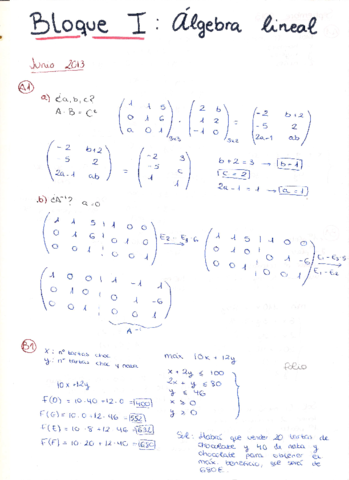 Bloque I: Álgebra lineal
Junio 2013
A1
a) ¿a, b, c?
A · B = Cᵗ
( 1 1 5 ; 0 1 6 ; a 0 1 )₃ₓ₃ · ( 2 b ; 1 2 ; -1 0 )₃ₓ₂ = ( -2 b+2 ; -5 2 ; 2a-1 ab )
( -2 b+2 ; -5 2 ; 2a-1 ab ) = ( -2 3 ; -5 c ; 1 1 )
b+2=3 → b=1
c=2
2a-1=1 → a=1
b) ¿A⁻¹? a=0
( 1 1 5 | 1 0 0 ; 0 1 6 | 0 1 0 ; 0 0 1 | 0 0 1 )
( 1 1 5 | 1 0 0 ; 0 1 0 | 0 1 -6 ; 0 0 1 | 0 0 1 )
( 1 0 0 | 1 -1 1 ; 0 1 0 | 0 1 -6 ; 0 0 1 | 0 0 1 )
A⁻¹
B1
x: nº tartas choc
y: nº tartas choc y nata
máx 10x+12y
x + 2y ≤ 100
2x + y ≤ 80
y ≤ 46
x ≥ 0
y ≥ 0
FOLIO
10x+12y
F(D) = 10·40+12·0 = 400
F(G) = 10·0+12·46 = 552
F(E) = 10·8+12·46 = 632
F(F) = 10·20+12·40 = 680
Sol: Habrá que vender 20 tartas de
chocolate y 40 de nata y
chocolate para obtener el
máx. beneficio, que será de
680€.